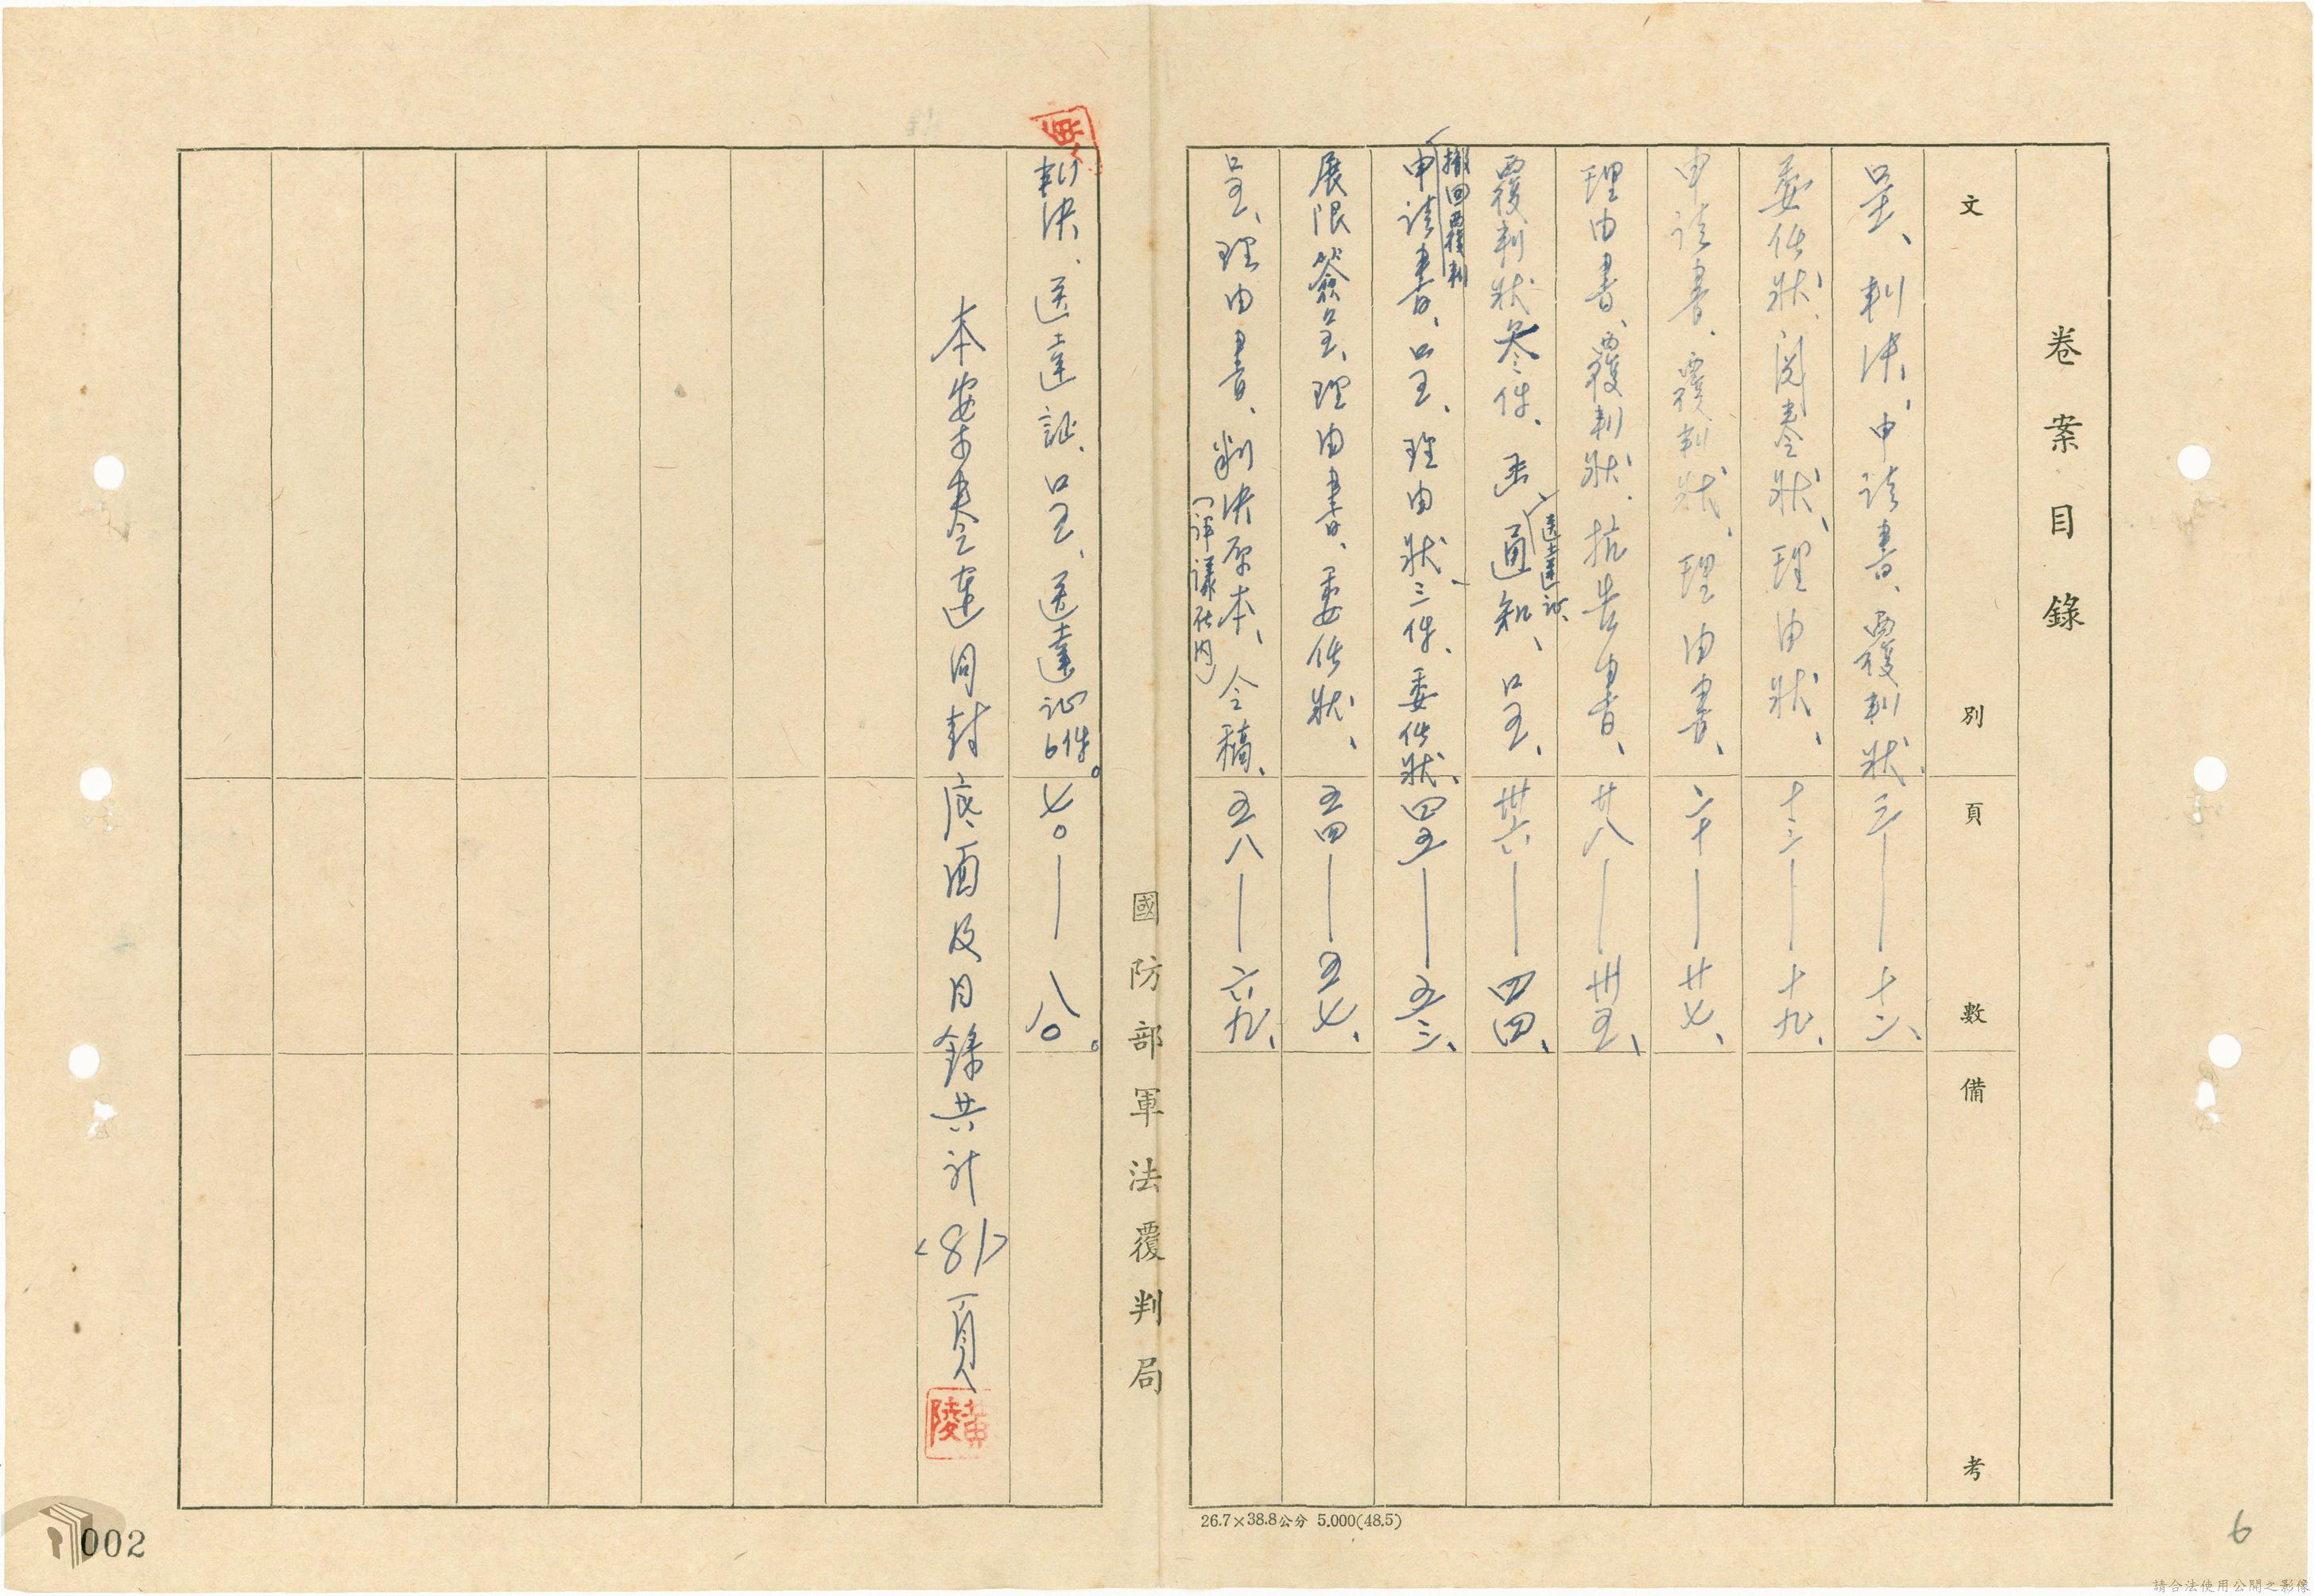 卷案目錄
文別 頁數 備考
呈、判決、申請書、覆判狀、三——十二、
委任狀、閱卷狀、理由狀、十三——十九、
申請書、覆判狀、理由書、二十——廿七、
理由書、覆判狀、抗告書、廿八——卅五、
覆判狀叁件、函、送達証、通知、呈、卅六——四四、
撤回覆判
申請書、呈、理由狀三件、委任狀、四五——五三、
展限簽呈、理由書、委任狀、五四——五七、
呈、理由書、判決原本、令稿、五八——六九、
(評議在內)
國防部軍法覆判局
判決、送達証、呈、送達証6件。七〇——八〇。
本案卷連同封底面及目錄共計<81>頁
黃陵
26.7×38.8公分 5.000(48.5)
002
6
請合法使用公開之影像